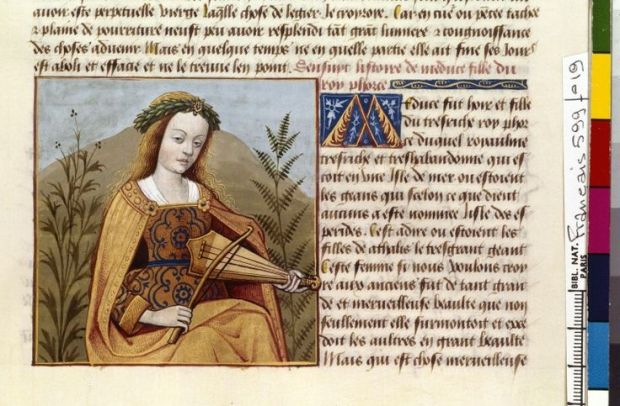 auoir este perpetuelle vierge laq̄lle chose de legier ie croyroie. Car en
& plaine de pourriture neust peu auoir resplendi tāt grāt lumiere & congnoissance
des choses aduenir Mais en quelque temps ne en quelle partie elle ait fine ses iours
est aboli et efface et ne le treuue len point. Sensuyt listoire de meduce fille du
roy phorce
Meduce fut hoir et fille
du tresriche roy phor
ce duquel royaulme
tresriche et treshabandonne qui es
toit en une Isle de mer ou estoient
les geans qui selon ce que dient
aucuns a este nommee lisle des es
perides. Cest adire ou estoient les
filles de athalis le tresgrant geant
Ceste femme si nous voulons croy
re aux anciens fut de tant gran
de et merueilleuse beaulte que non
seullement elle surmontoit et exce
doit les aultres en grant beaulte
Mais qui est chose merueilleuse
BIBL. NAT. PARIS
Français 599 fo 19